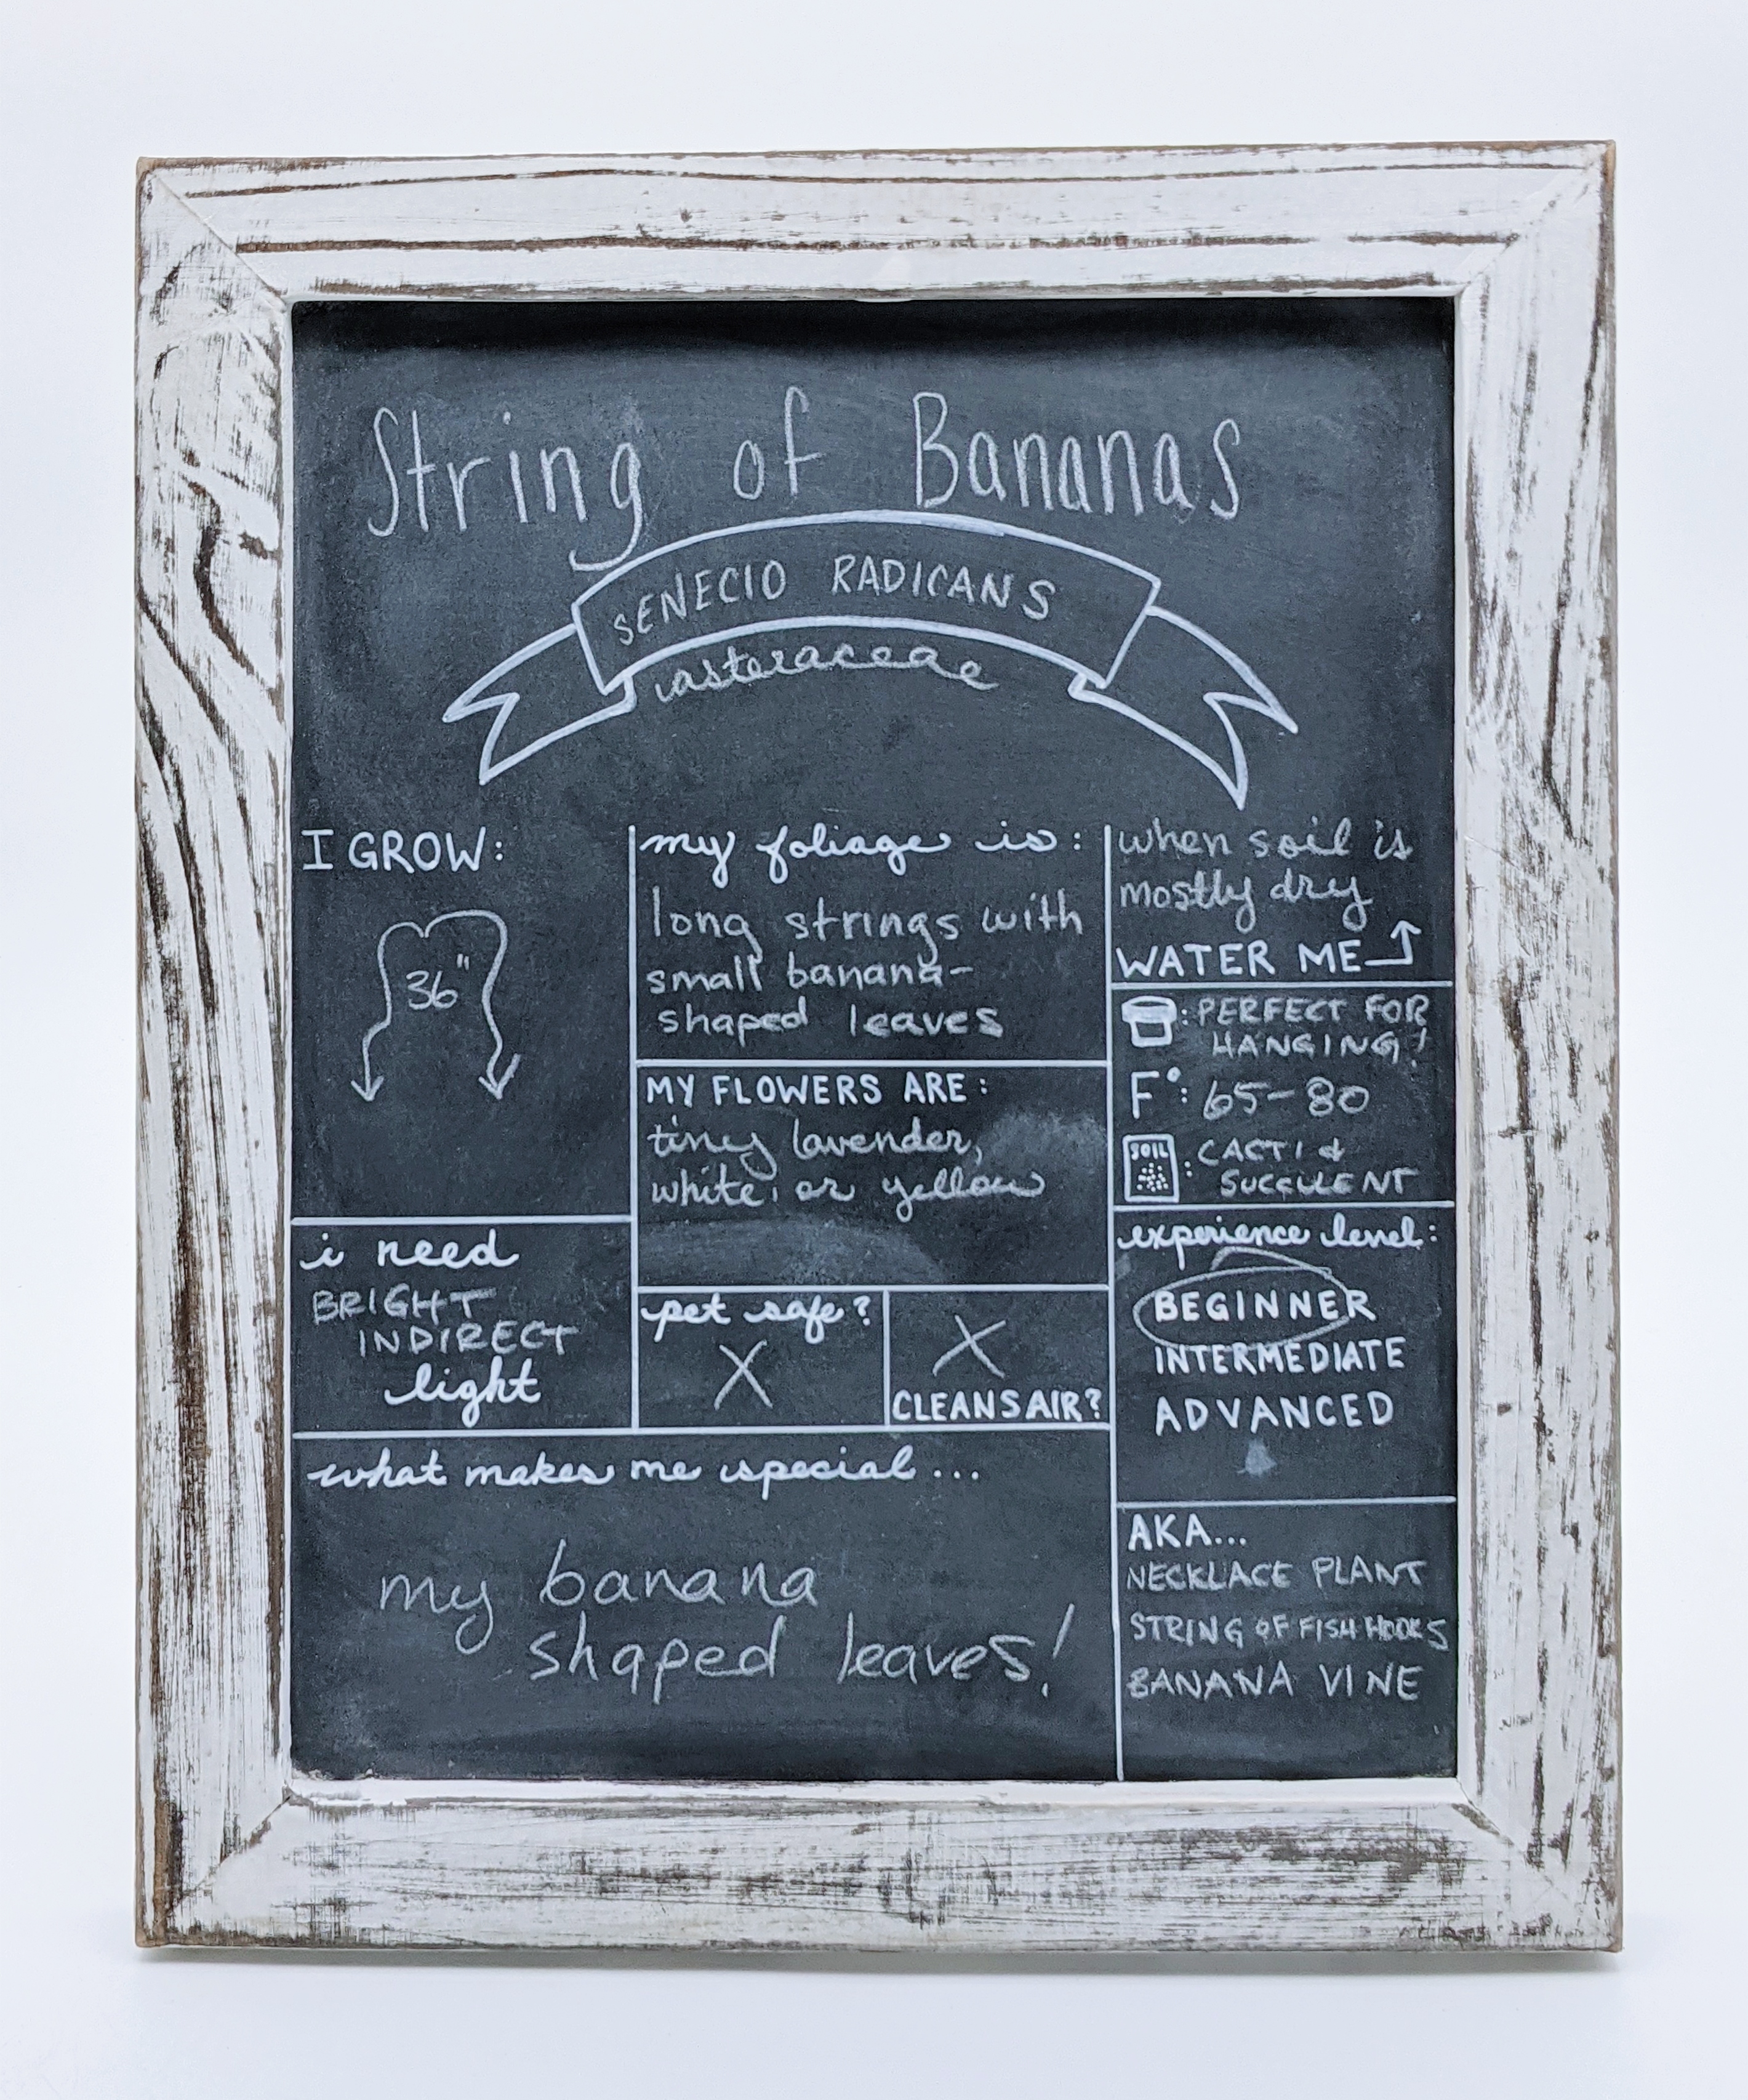 String of Bananas
SENECIO RADICANS
asteraceae
I GROW:
36"
i need
BRIGHT
INDIRECT
light
my foliage is:
long strings with
small banana-
shaped leaves
MY FLOWERS ARE:
tiny lavender,
white, or yellow
pet safe?
X
X
CLEANS AIR?
when soil is
mostly dry
WATER ME
: PERFECT FOR
HANGING!
F°: 65-80
SOIL : CACTI &
SUCCULENT
experience level:
BEGINNER
INTERMEDIATE
ADVANCED
what makes me special...
my banana
shaped leaves!
AKA...
NECKLACE PLANT
STRING OF FISH HOOKS
BANANA VINE